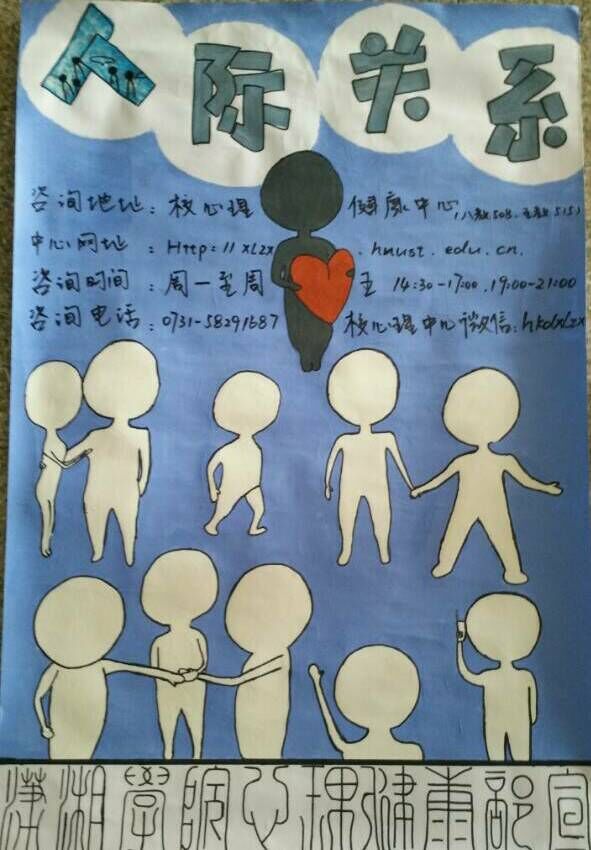 人际关系
咨询地址：校心理健康中心(八教508、五教515)
中心网址：Http://xlzx.hnust.edu.cn.
咨询时间：周一至周五 14:30-17:00、19:00-21:00
咨询电话：0731-58291687 校心理中心微信：hkdxlzx
瀟湘學院心理健康部宣